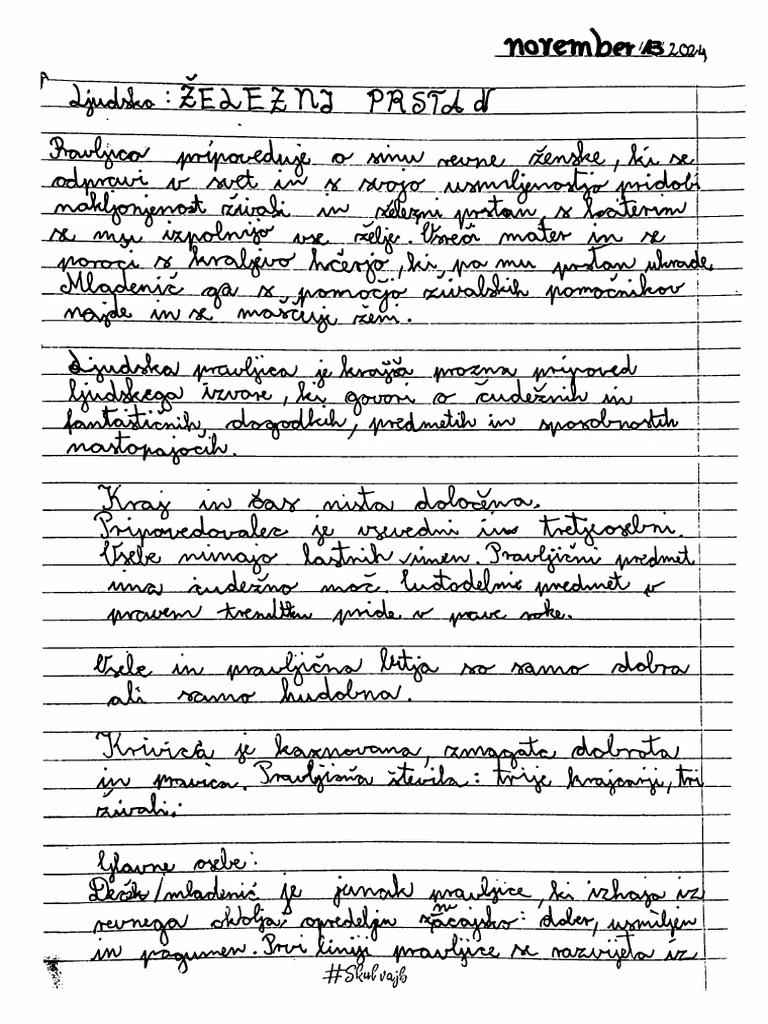 november 13 2024
Ljudska: ŽELEZNI PRSTAN
Pravljica pripoveduje o sinu revne ženske, ki se
odpravi v svet in s svojo usmiljenostjo pridobi
naklonjenost živali in železni prstan, s katerim
se mu izpolnijo vse želje. Osreči mater in se
poroči s kraljevo hčerjo, ki, pa mu prstan ukrade.
Mladenič ga s pomočjo živalskih pomočnikov
najde in se maščuje ženi.
Ljudska pravljica je krajša prozna pripoved
ljudskega izvora, ki govori o čudežnih in
fantastičnih, dogodkih, predmetih in sposobnostih
nastopajočih.
Kraj in čas nista določena.
Pripovedovalec je vsevedni in tretjeosebni.
Osebe nimajo lastnih imen. Pravljični predmet
ima čudežno moč. Čudodelni predmet v
pravem trenutku pride v prave roke.
Osebe in pravljična bitja so samo dobra
ali samo hudobna.
Krivica je kaznovana, zmagata dobrota
in pravica. Pravljična števila: trije krajcarji, tri
živali.
Glavne osebe:
Deček/mladenič je junak pravljice, ki izhaja iz
revnega okolja; opredeljen značajsko: dober, usmiljen
in pogumen. Prvi liniji pravljice se razvijeta iz
#Skulvajb